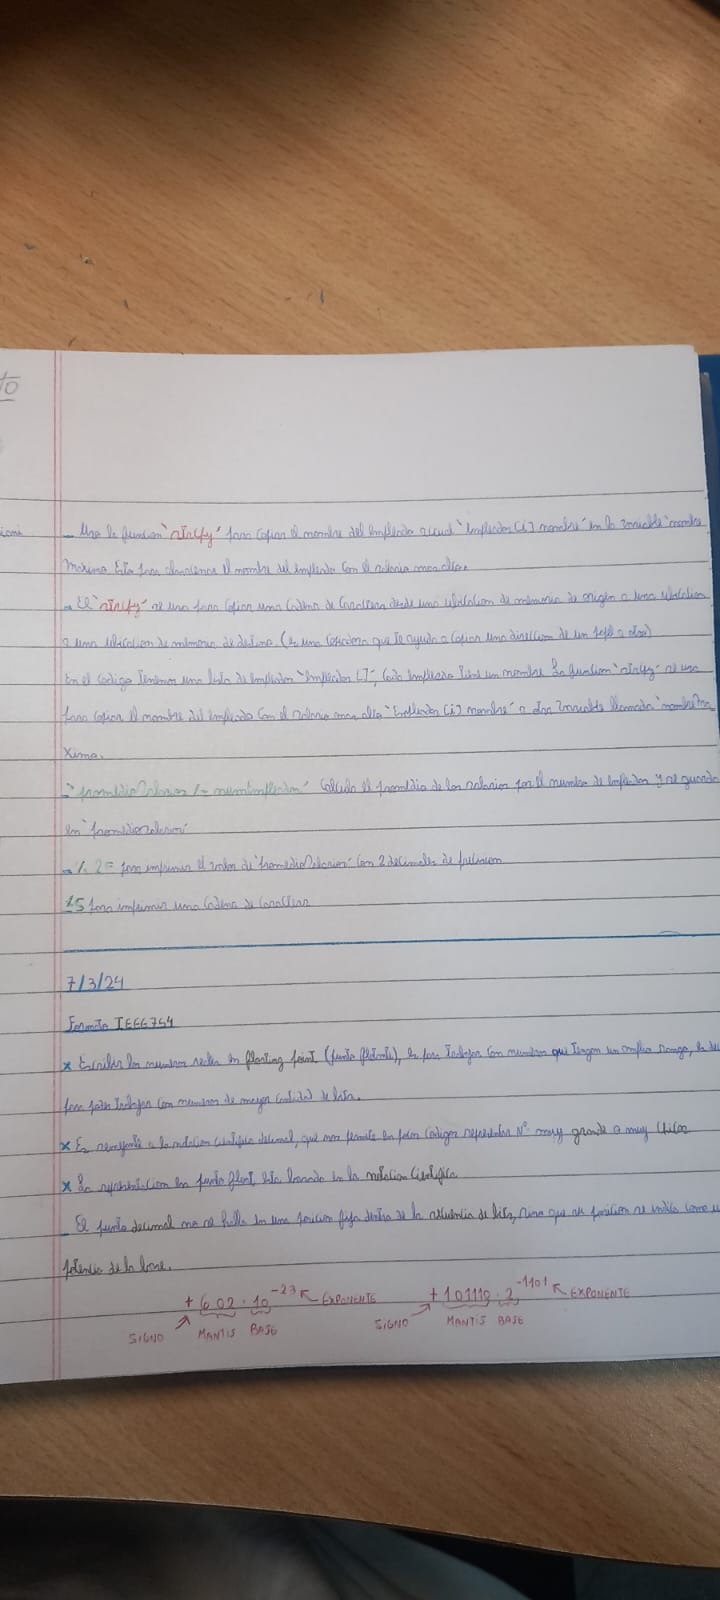 - Usa la función "strcpy" para copiar el nombre del empleado actual "empleados [i] nombre" en la variable "nombre
Maximo. Esto para obtener el nombre del empleado con el salario mas alto.
- El "strcpy" se usa para copiar una cadena de caracteres desde una ubicacion de memoria de origen a una ubicacion
a una ubicacion de memoria de destino. (es una que te ayuda a copiar una direccion de un papel a otro)
En el codigo tenemos una lista de empleados "empleados []", cada empleado tiene un nombre. La funcion "strcpy" se usa
para copiar el nombre del empleado con el salario mas alto "Empleados [i] nombre" a otra variable llamada "nombreMa
ximo.
- "promedioSalarios /= numEmpleados" Calcula el promedio de los salarios por el numero de empleados y se guarda
en "promedioSalarios"
- %. 2F para imprimir el valor de "promedioSalarios" con 2 decimales de precision
%S para imprimir una cadena de caracteres
7/3/24
Formato IEEE754
x Escribir los numeros reales en floating point (punto flotante), es para trabajar con numeros que tengan un amplio rango, es decir
para poder trabajar con numeros de mayor cantidad de bits.
x Es semejante a la notacion cientifica decimal, que nos permite en pocos codigos representar Nº muy grande o muy chicos
x La representacion en punto flot, esta basada en la notacion Cientifica
- El punto decimal no se halla en una posicion fija dentro de la secuencia de bits, sino que su posicion se indica como una
potencia de la base.
+ 6,02 · 10 -23 EXPONENTE + 1,01110 · 2 -1101 EXPONENTE
SIGNO MANTIS BASE SIGNO MANTIS BASE